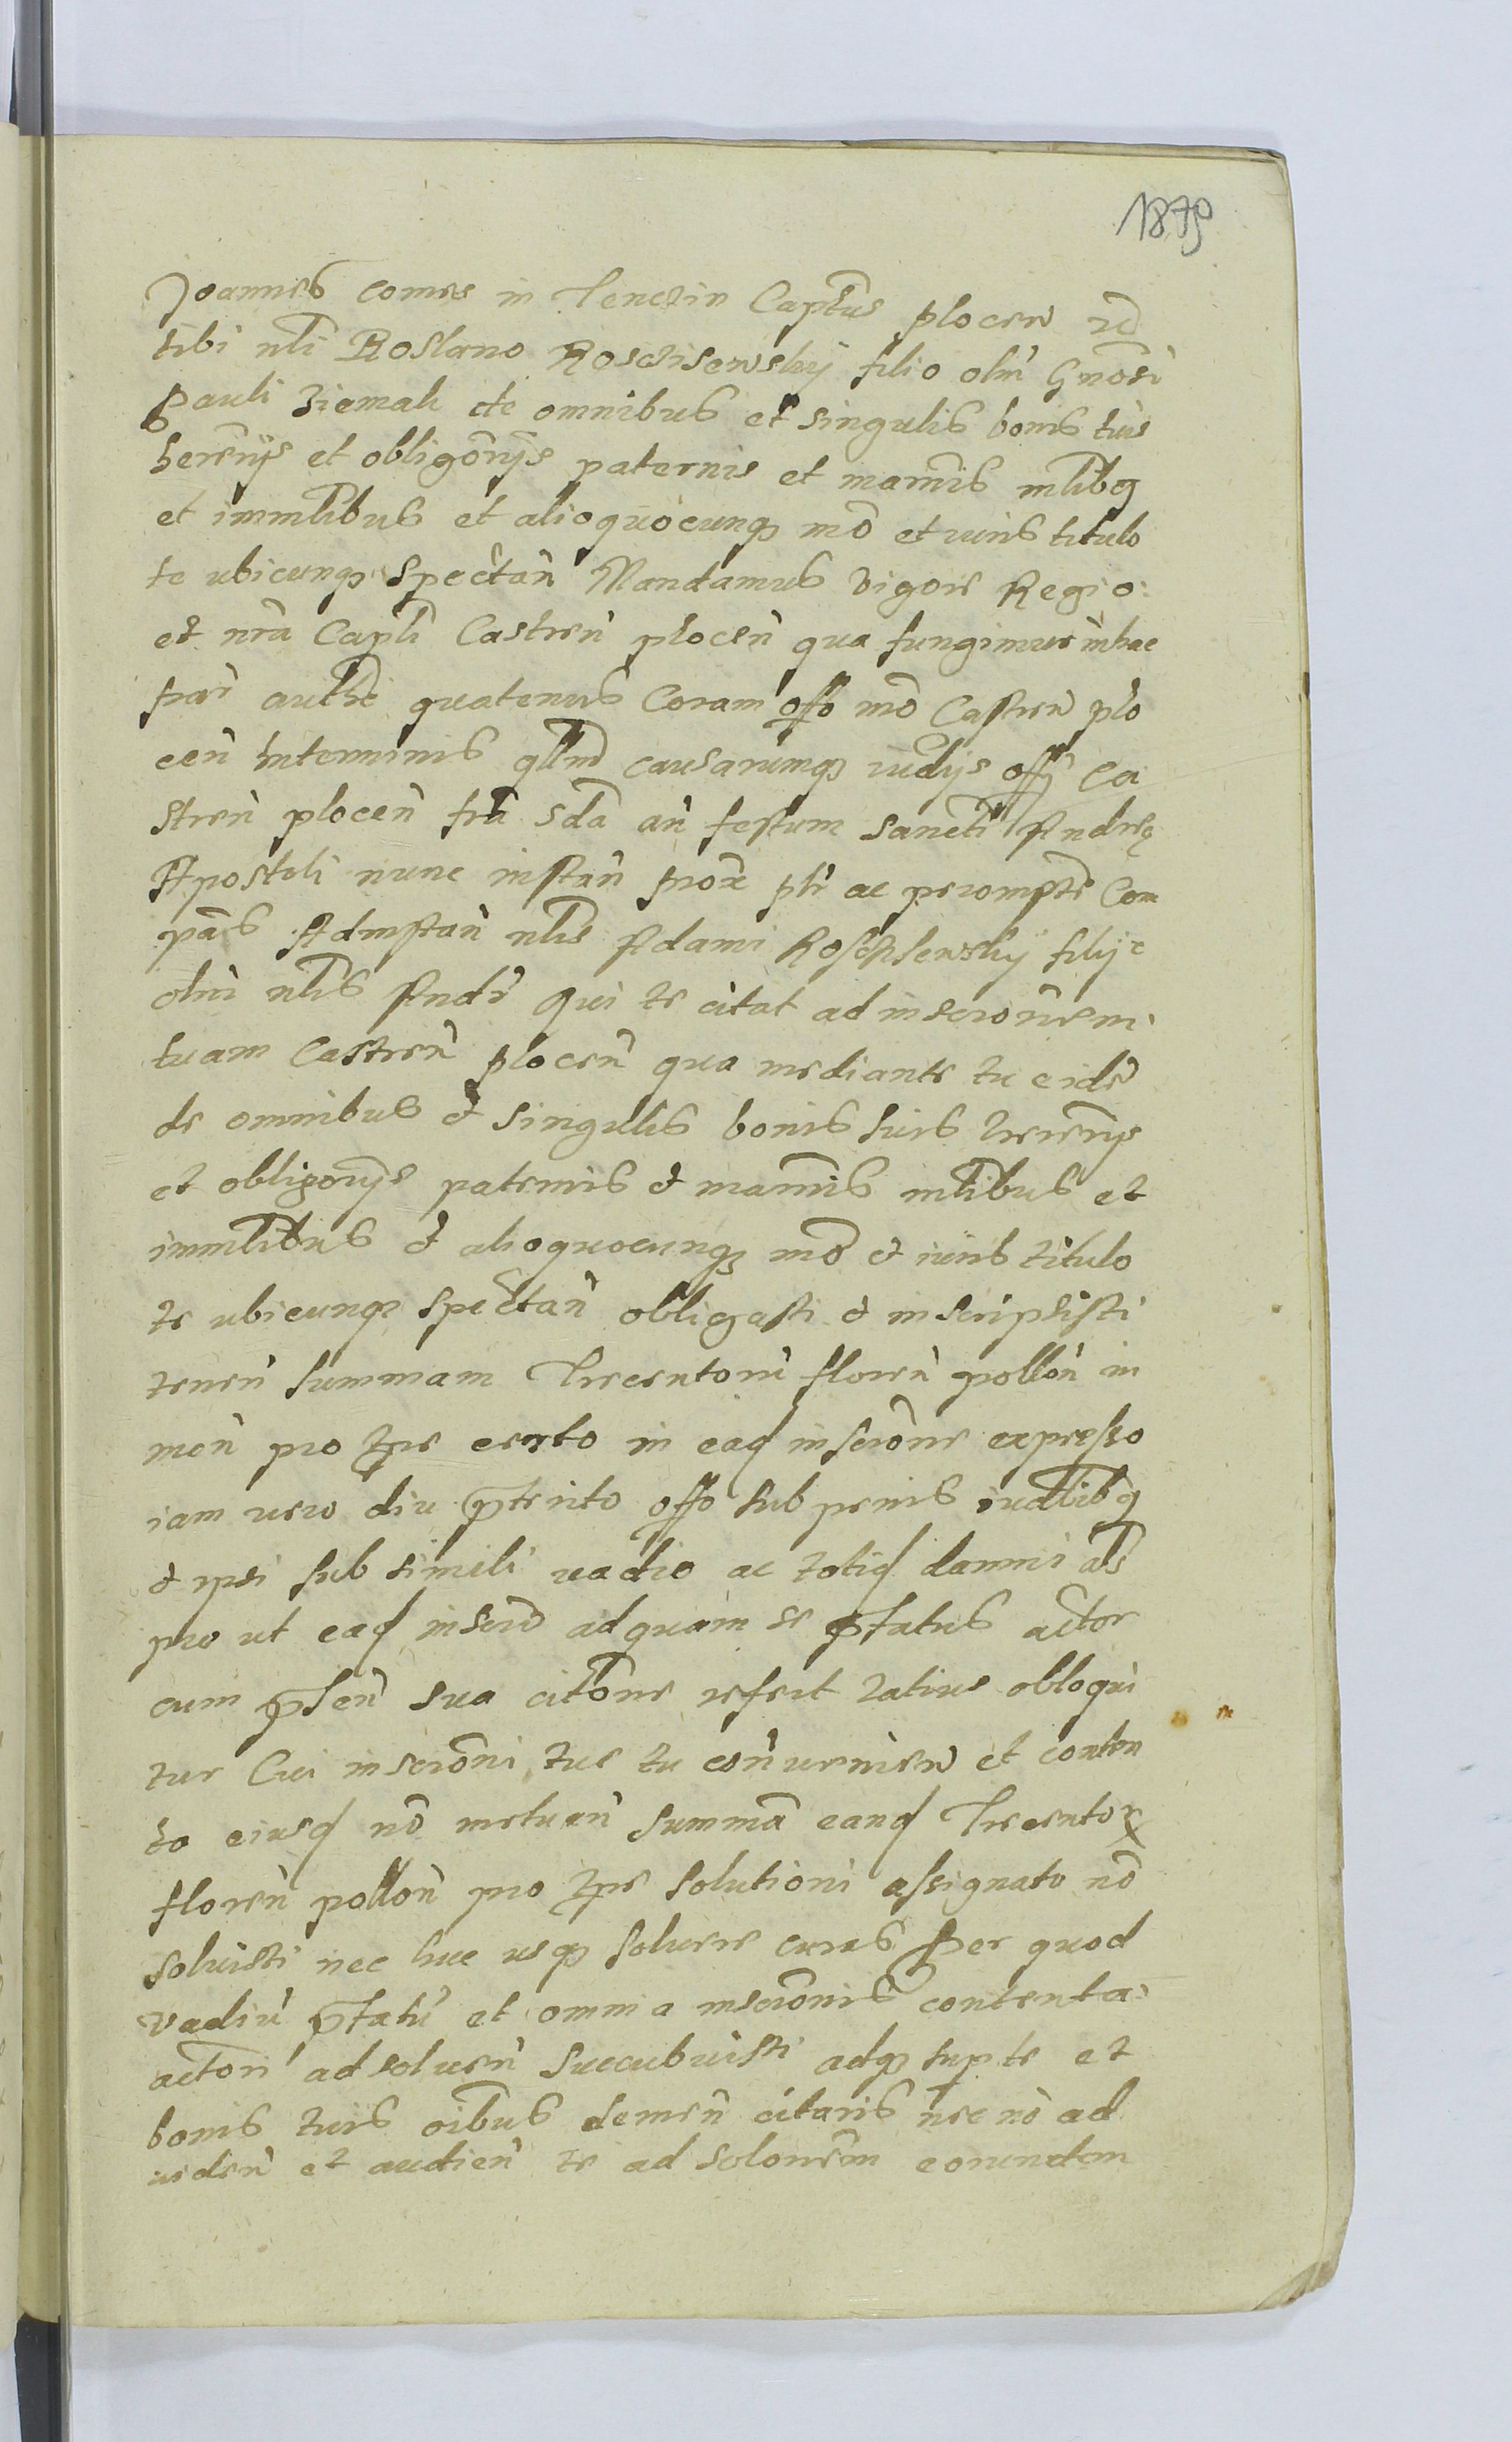 1879
Joannes comes in Tenczin Captus plocen etc
tibi nli Roslano Rosczisewskij filio olim Gnosi
Pauli Ziemak de omnibus et singulis bonis tuis
hereniis et obligonijs paternis et mamis mlibq
et immlibus et alioquocunq mo et iuris titulo
te ubicunq spectan Mandamus vigore Regio
et nra Capli Castren plocen qua fungimur in hac
par authe quatenus Coram offo mo Castren plo
cen in terminis qllm causarumq iudijs offi Ca
stren plocen fra sda an festum sancti Andree
Apostoli nunc instan prox ptr ac peremptre Com
pas Ad instan nlis Adami Roscziszewskij filij
olim nlis Andr Qui te citat ad inscronem
tuam Castren plocen qua mediante tu eide
de omnibus et singulis bonis suis hereniis
et obligonijs paternis et mamis mlibus et
immlibus et alioquocunq mo et iuris titulo
te ubicunq spectan obligasti et inscripsisti
tenen summam Trecentorum floren pollon in
mon pro tpre certo in eaq inscrone expresso
iam vero diu prterito offo sub penis iudlibq
et ipsi sub simili vadio ac totiq damni als
pro ut eaq inscro ad quam se prfatus actor
cum prsen sua citone refert latius obloqui
tur Cui inscroni tue tu contravenien et conten
to eiusq no metuen summa eanq Trecentor
floren pollon pro tpre solutioni assignato no
soluisti nec huc usq soluere curas Per quod
vadiu prfatu et omnia inscronis contenta
actori ad soluen succubuisti adq sup te et
bonis tuis oibus demen citaris nec no ad
viden et audien te ad solonem eorundem